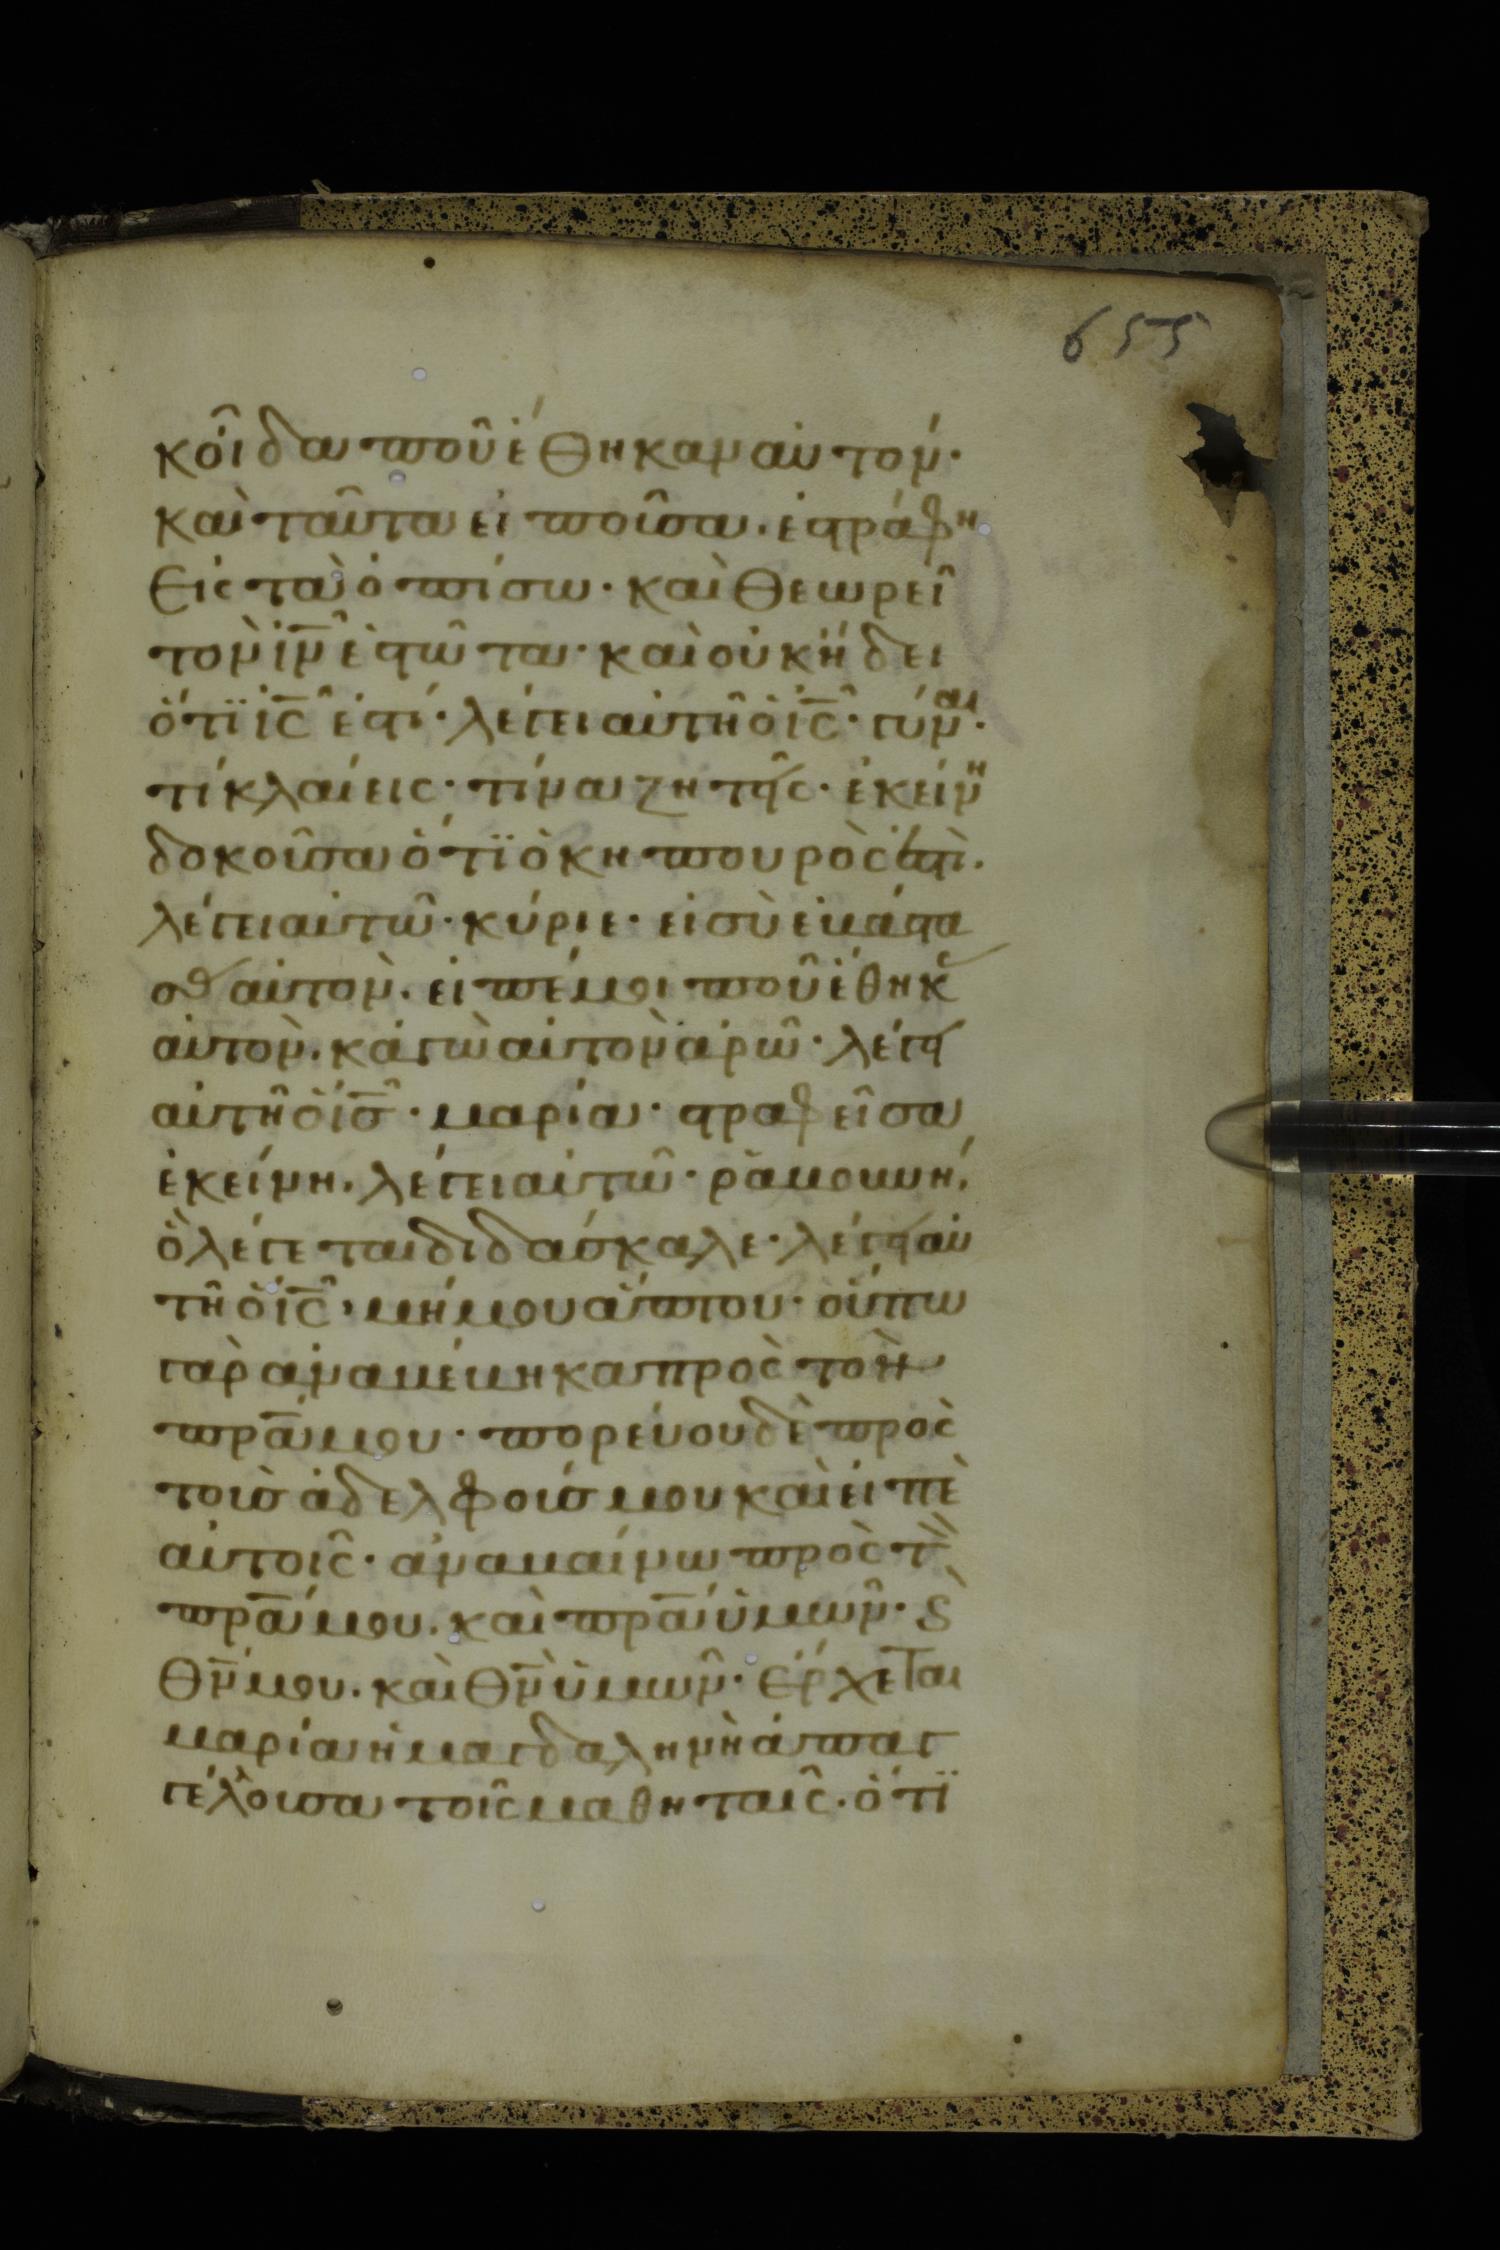 655
κ οἶδα ποῦ ἔθηκαν αὐτόν·
καὶ ταῦτα εἰποῦσα. ἐστράφη
Εἰς τὰ ὀπίσω· καὶ θεωρεῖ
τὸν ἰν̅ ἑστῶτα· καὶ οὐκ ἤδει
ὅτϊ ἰς̅ ἐστί· λέγει αὐτῆ ὁ ἰς̅· γύναι·
τί κλαίεις· τίνα ζητεῖς· ἐκείνη
δοκοῦσα ὅτϊ ὁ κηπουρὸς ἐστὶ.
λέγει αὐτῶ· κύριε· εἰ σὺ ἐβάστα
σας αὐτὸν. εἰπέ μοι ποῦ ἔθηκας
αὐτὸν. κἀγὼ αὐτὸν ἀρῶ· λέγει
αὐτῆ ὁ ἰσ̅· μαρία· στραφεῖσα
ἐκείνη. λέγει αὐτῶ· ραβουνή.
ὃ λέγεται διδάσκαλε· λέγει αὐ
τῆ ὁ ἰς̅· μή μου ἅπτου· οὔπω
γὰρ ἀναβέβηκα πρὸς τὸν
πρ̅α μου· πορεύου δὲ πρὸς
τοὺσ ἀδελφούσ μου καὶ εἰπὲ
αὐτοῖς· ἀναβαίνω πρὸς τὸν
πρ̅α μου. καὶ πρ̅α ὑμῶν· ϗ
θν̅ μου. καὶ θν̅ ὑμῶν· Ἔρχεται
μαρία ἡ μαγδαληνὴ ἀπαγ
γέλουσα τοῖς μαθηταῖς. ὅτϊ